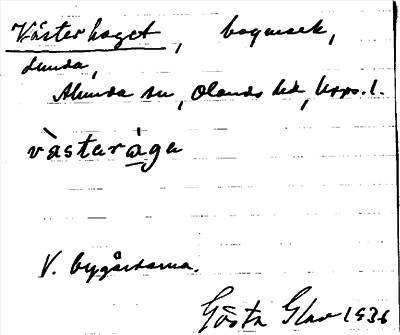 Västerhaget, hagmark,
Lunda,
Alunda sn, Olands hd, Upps. l.
västəràga
V. bygårdarna.
Gösta Glas 1936